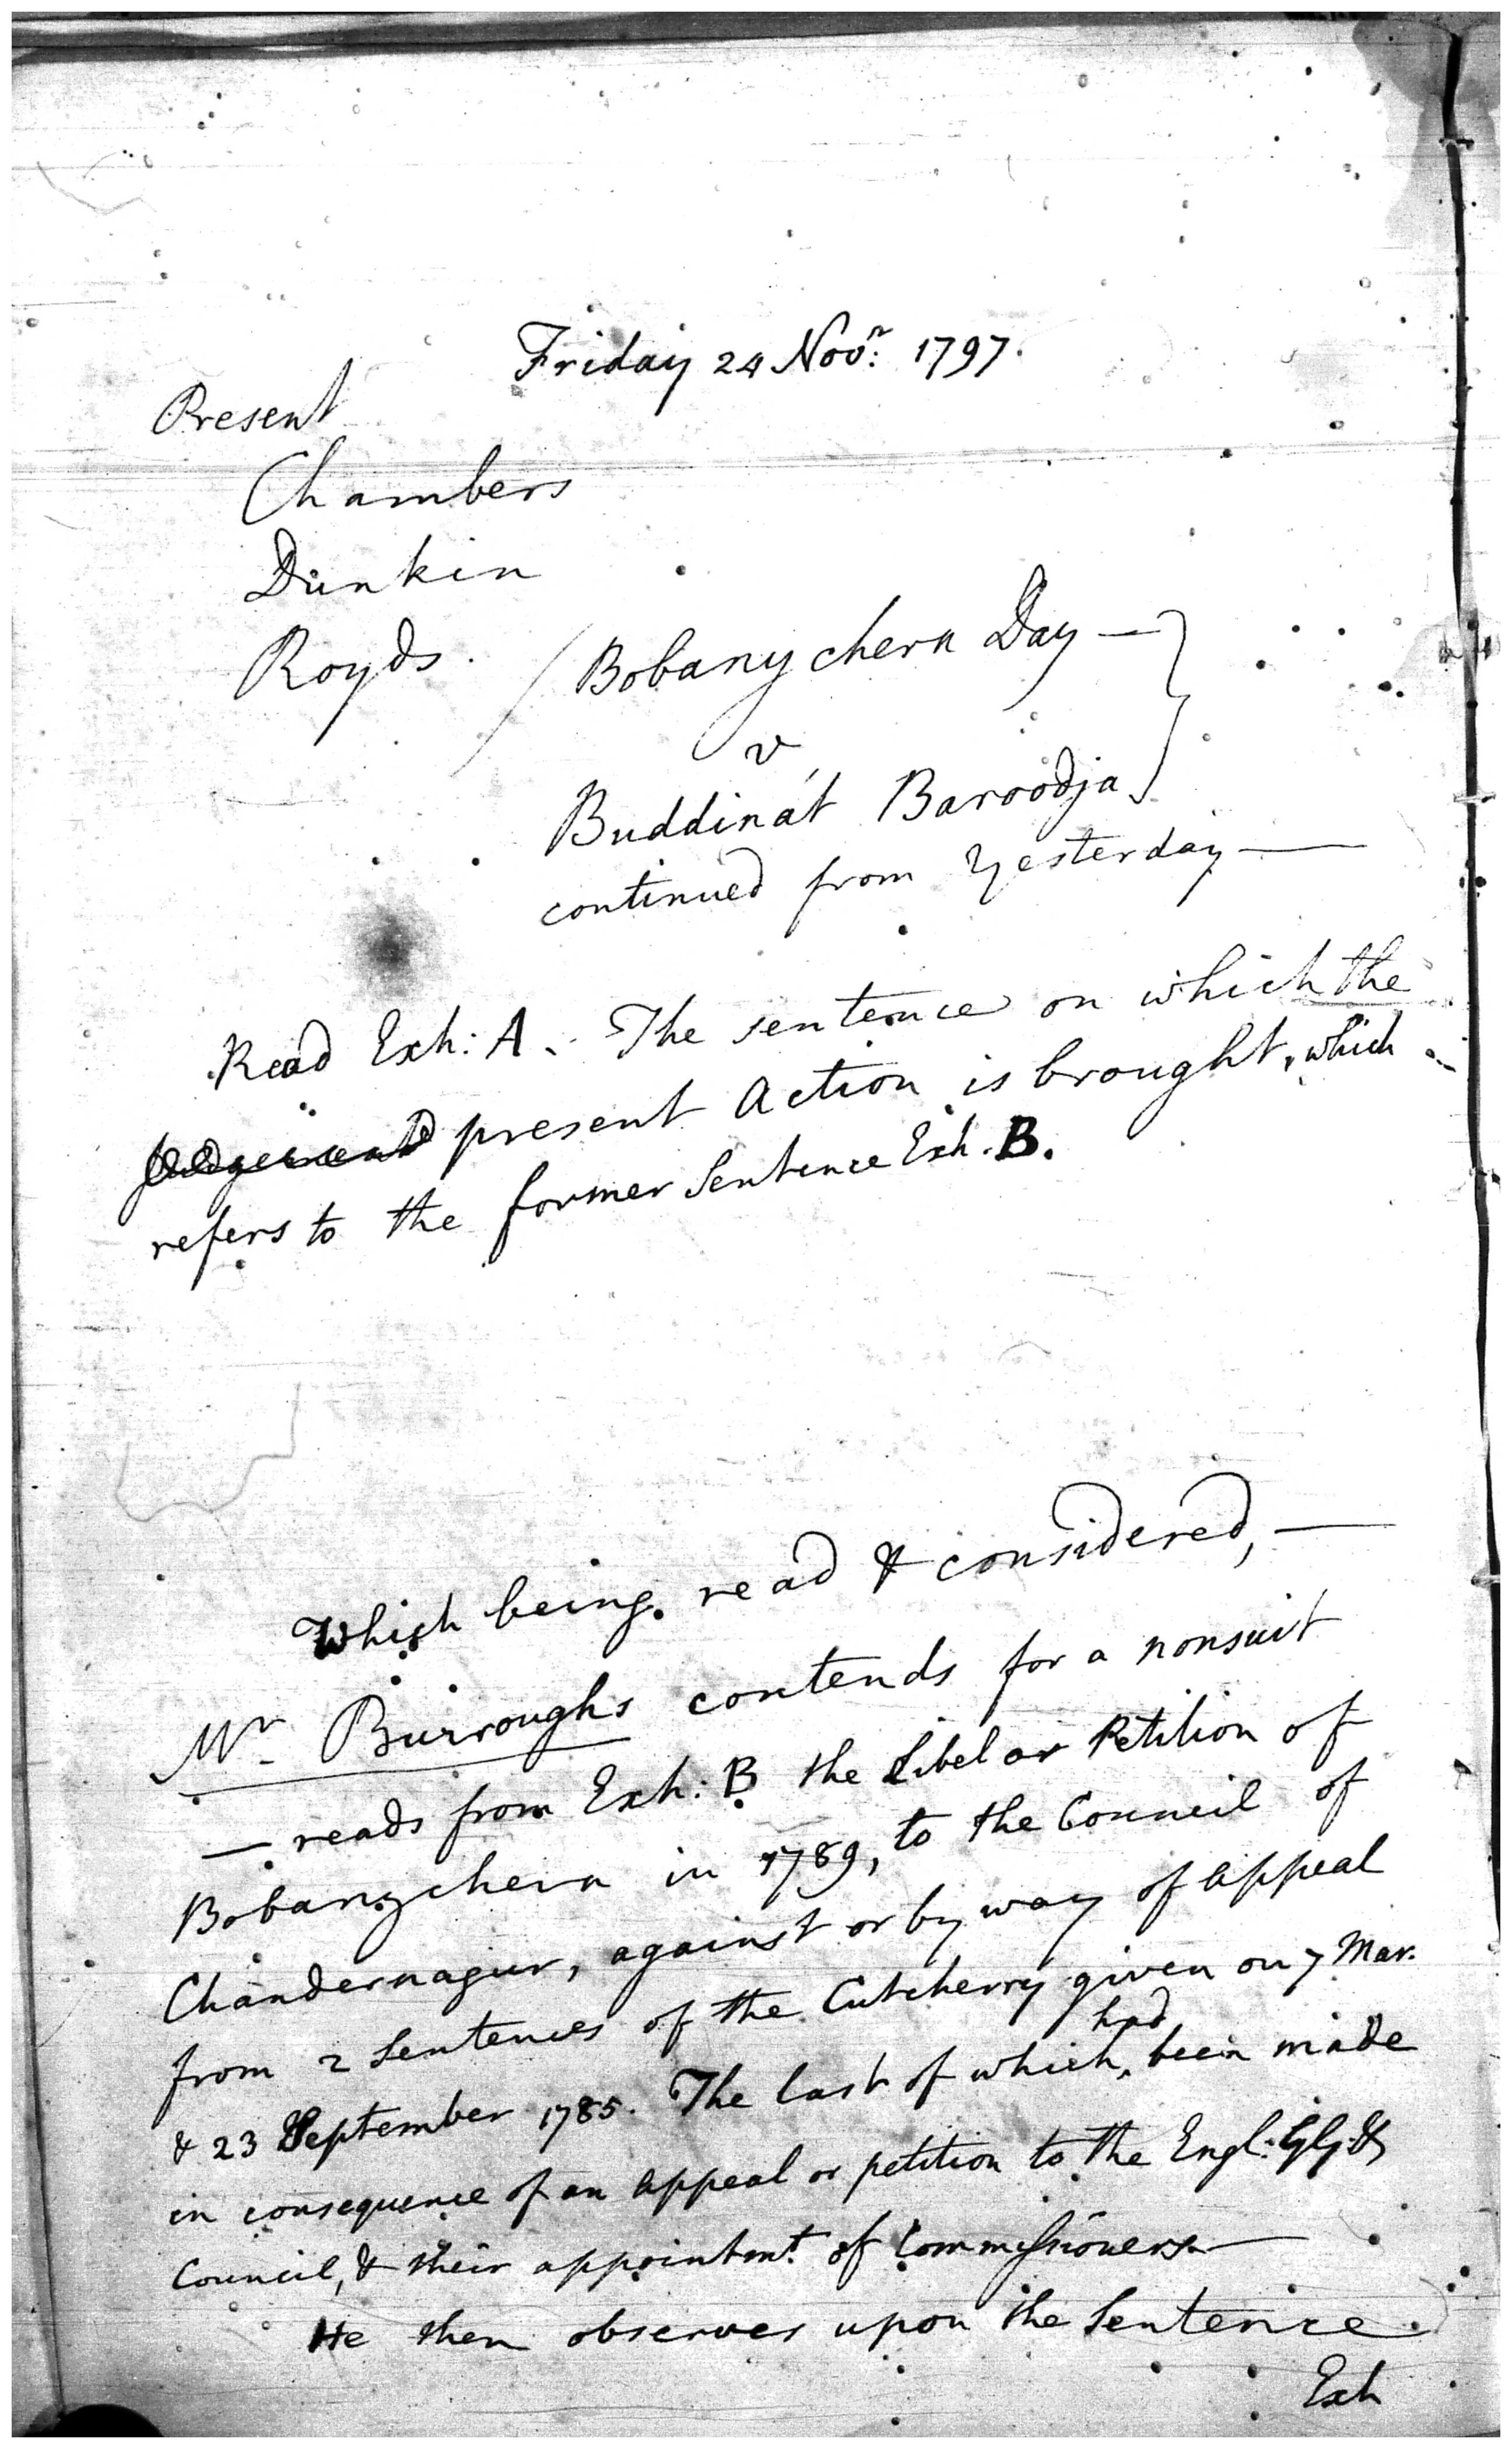 Friday 24 Novr: 1797.
Present
Chambers
Dunkin
Royds.
Bobanychern Day —
v
Buddinát Baroodja
continued from Yesterday —
Read Exh: A. The sentence on which the
Judgement present Action is brought, which
refers to the former Sentence Exh. B.
Which being read & considered, —
Mr Burroughs contends for a nonsuit
— reads from Exh: B the Libel or Petition of
Bobanychern in 1789, to the Council of
Chandernagur, against or by way of Appeal
from 2 Sentences of the Cutcherry given on 7 Mar.
& 23 September 1785. The last of which had been made
in consequence of an Appeal or petition to the Engl:
Council, & their appointmt. of Commissioners —
He then observes upon the Sentence
Exh